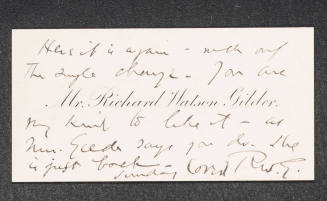 Here it is again - with only
the single change - You are
Mr. Richard Watson Gilder.
very kind to like it - as
Mrs. says you do. She
is just back -
Sunday R.W.G.